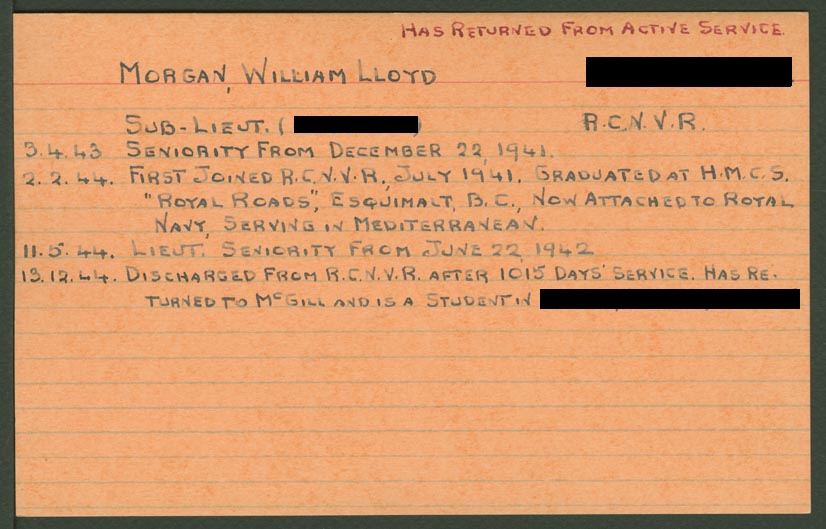 HAS RETURNED FROM ACTIVE SERVICE.
MORGAN, WILLIAM LLOYD
SUB-LIEUT. ( ) R.C.N.V.R.
3.4.43 SENIORITY FROM DECEMBER 22, 1941.
2.2.44. FIRST JOINED R.C.N.V.R., JULY 1941. GRADUATED AT H.M.C.S.
"ROYAL ROADS", ESQUIMALT, B.C., NOW ATTACHED TO ROYAL
NAVY, SERVING IN MEDITERRANEAN.
11.5.44. LIEUT. SENIORITY FROM JUNE 22, 1942
13.12.44. DISCHARGED FROM R.C.N.V.R. AFTER 1015 DAYS' SERVICE. HAS RE-
TURNED TO MCGILL AND IS A STUDENT IN